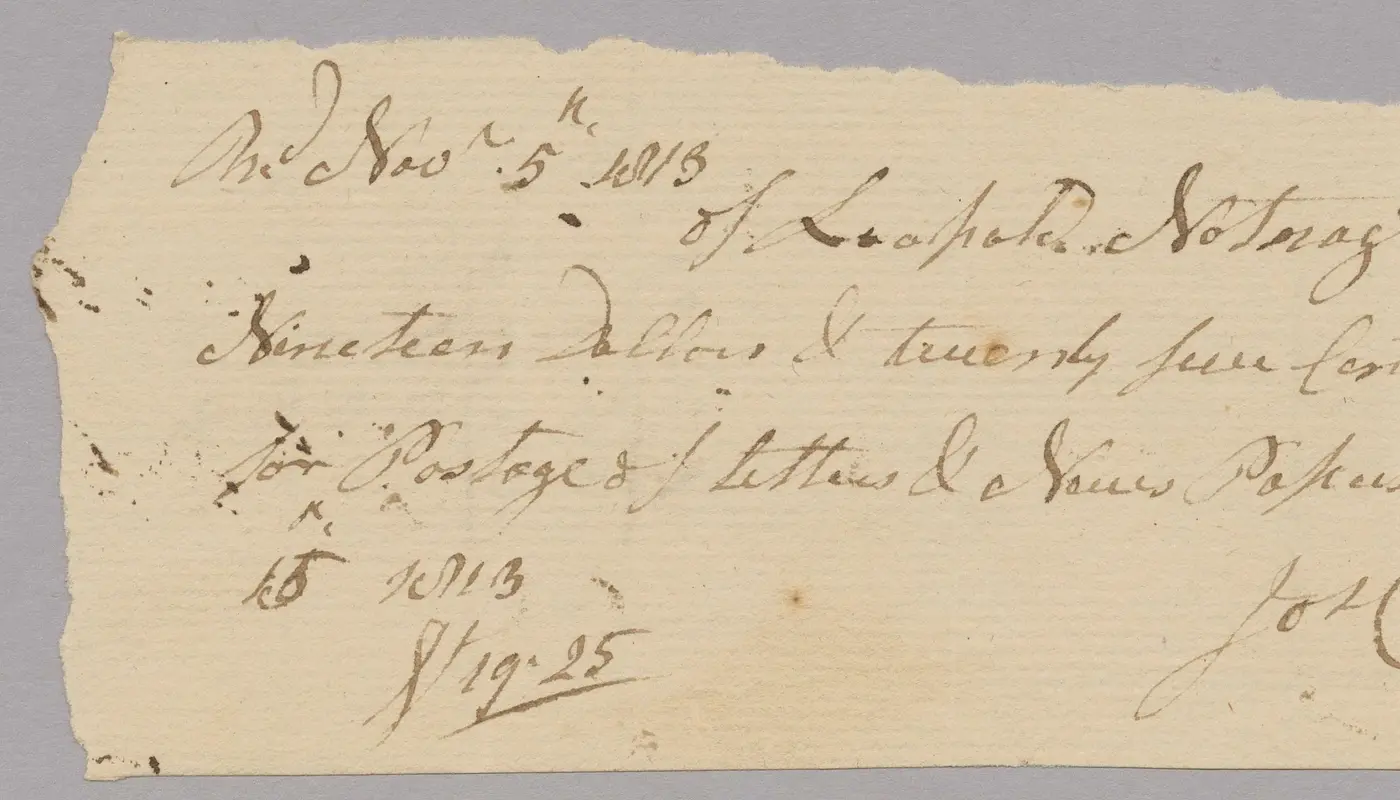 Rec.d Nov.r 5th 1813
of Leopold Notnag
Nineteen Dollars & twenty five Cen
for Postage of letters & News Papers
15th 1813
$19.25
Jos